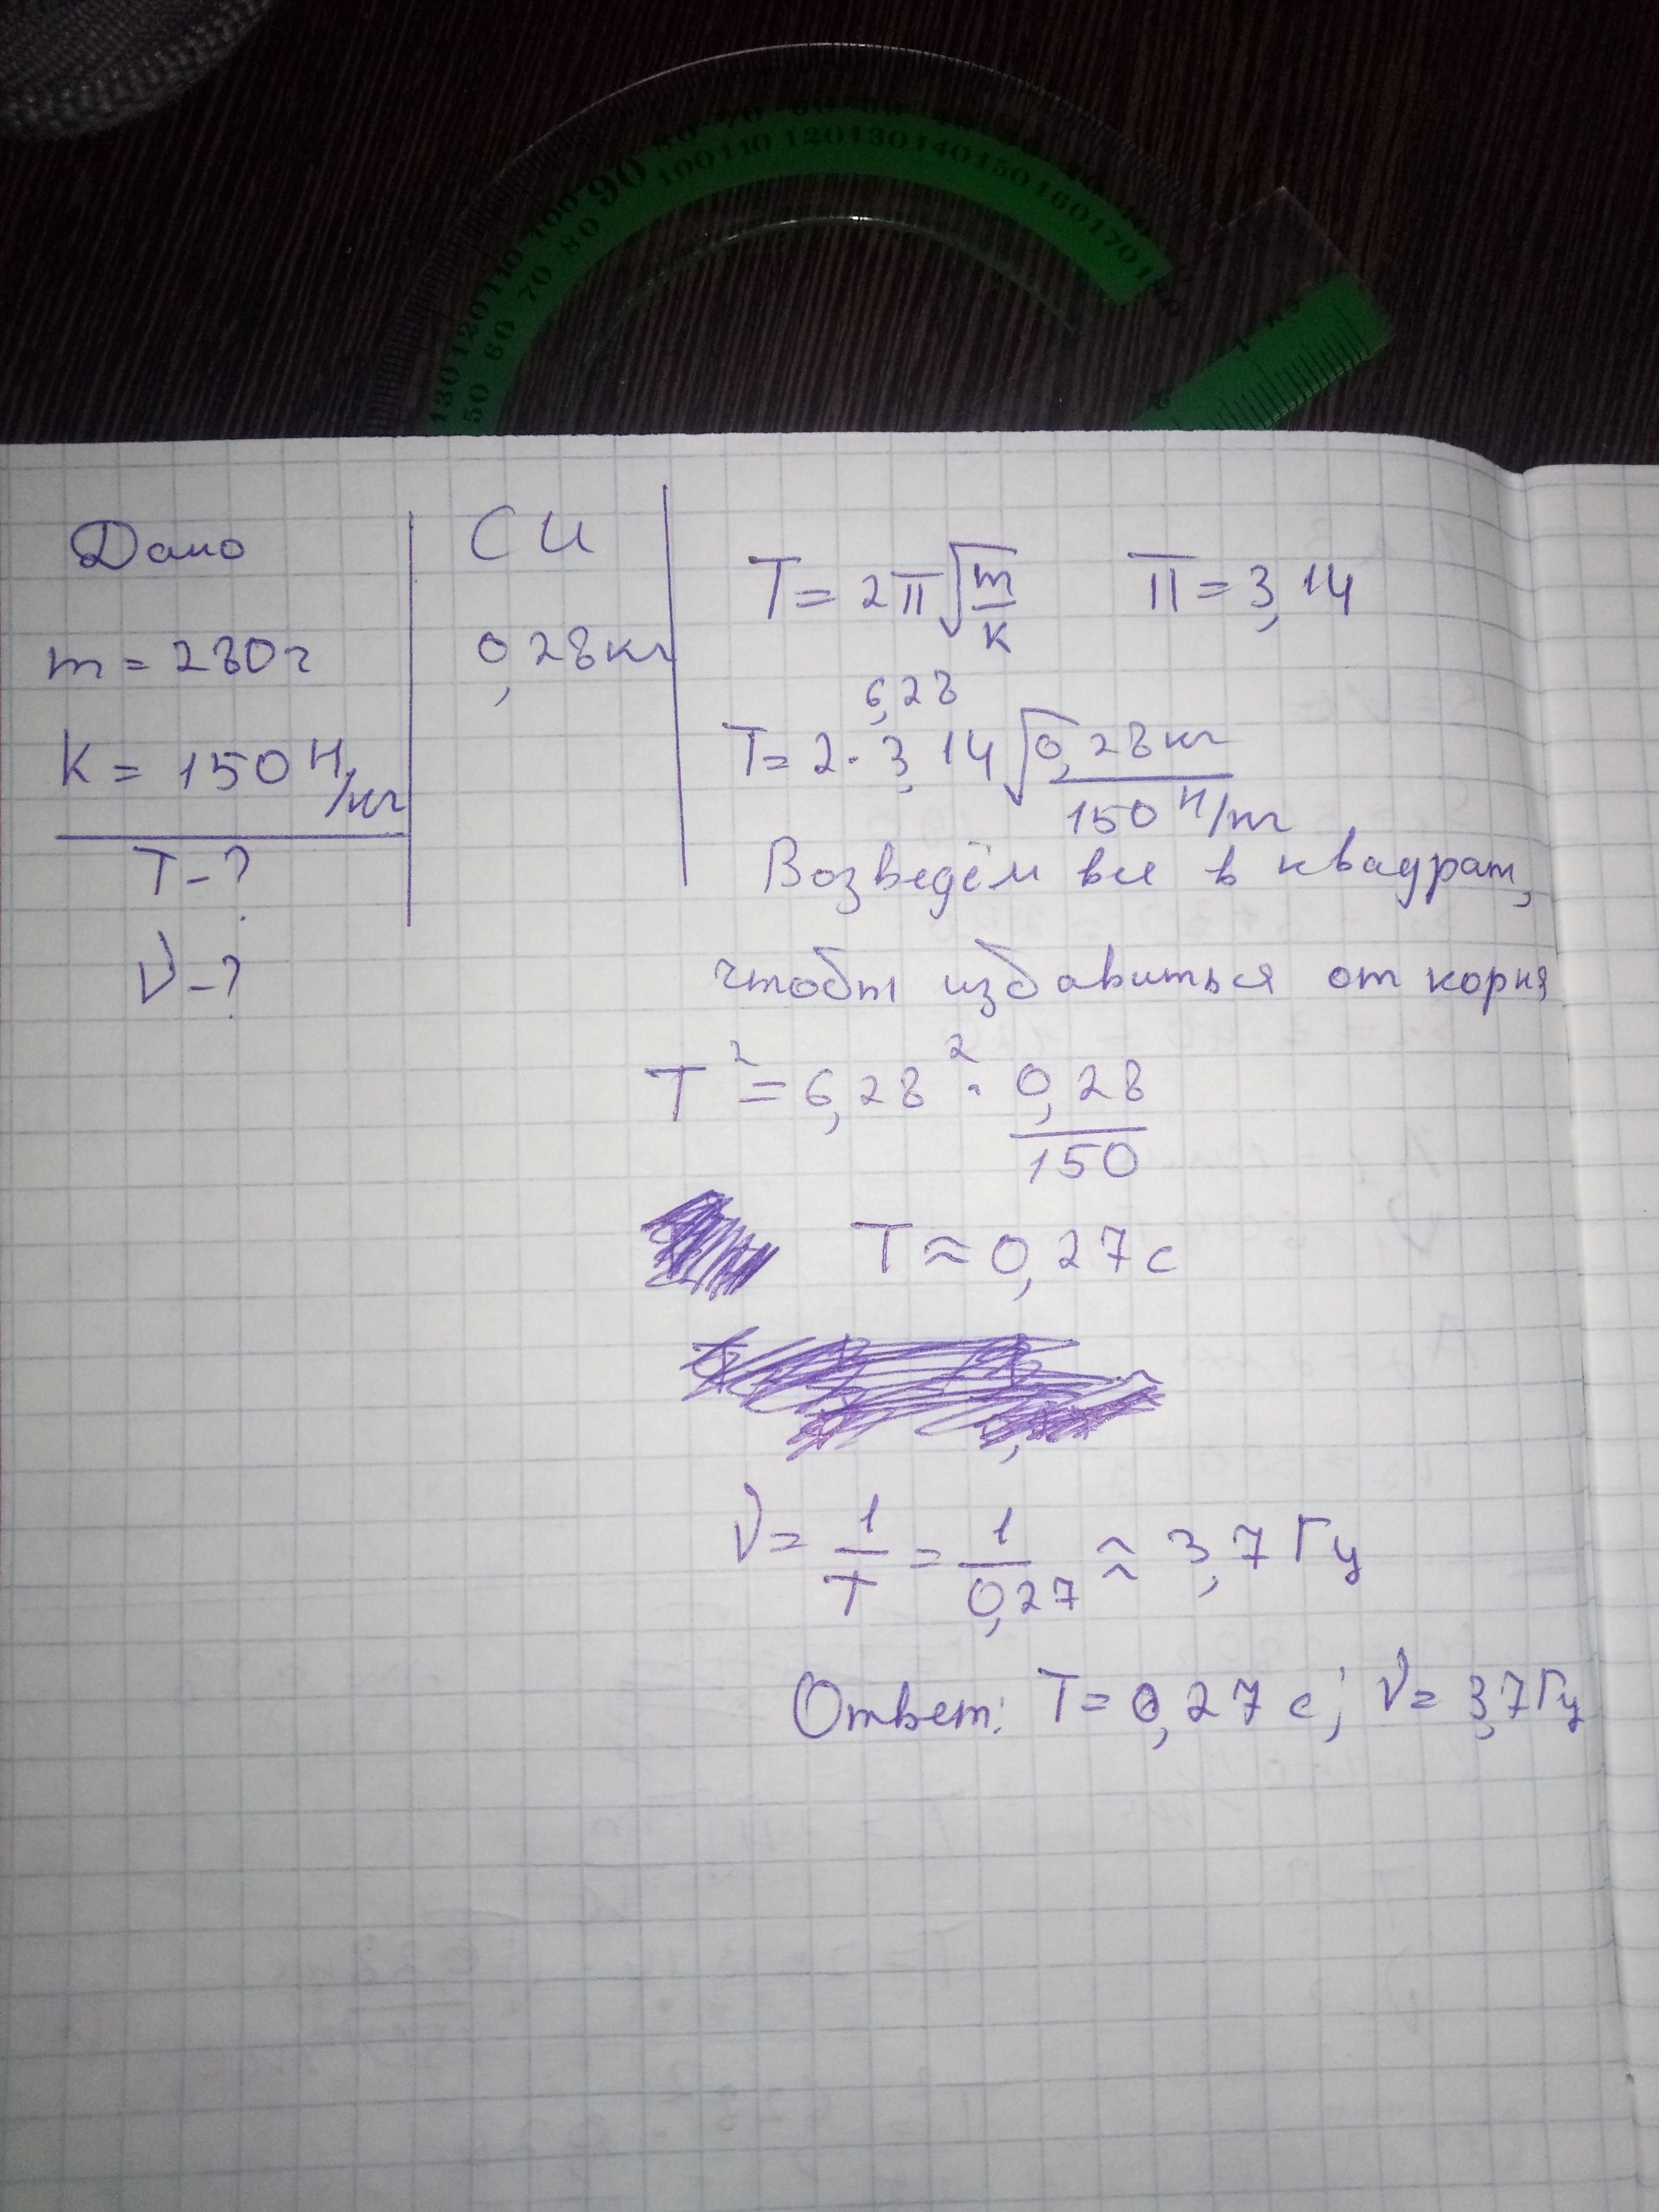 130 120 110 100 90 80 70 60 50 40
50 60 70 80 100 110 120 130 140 150 160 170
Дано
СИ
T = 2π√m/k π = 3,14
m = 280г
0,28кг
6,28
k = 150 Н/кг
T = 2 · 3,14 √0,28кг/150 Н/кг
T - ?
ν - ?
Возведём все в квадрат,
чтобы избавиться от корня
T² = 6,28² · 0,28/150
T ≈ 0,27с
ν = 1/T = 1/0,27 ≈ 3,7 Гц
Ответ: T = 0,27 с; ν = 3,7Гц